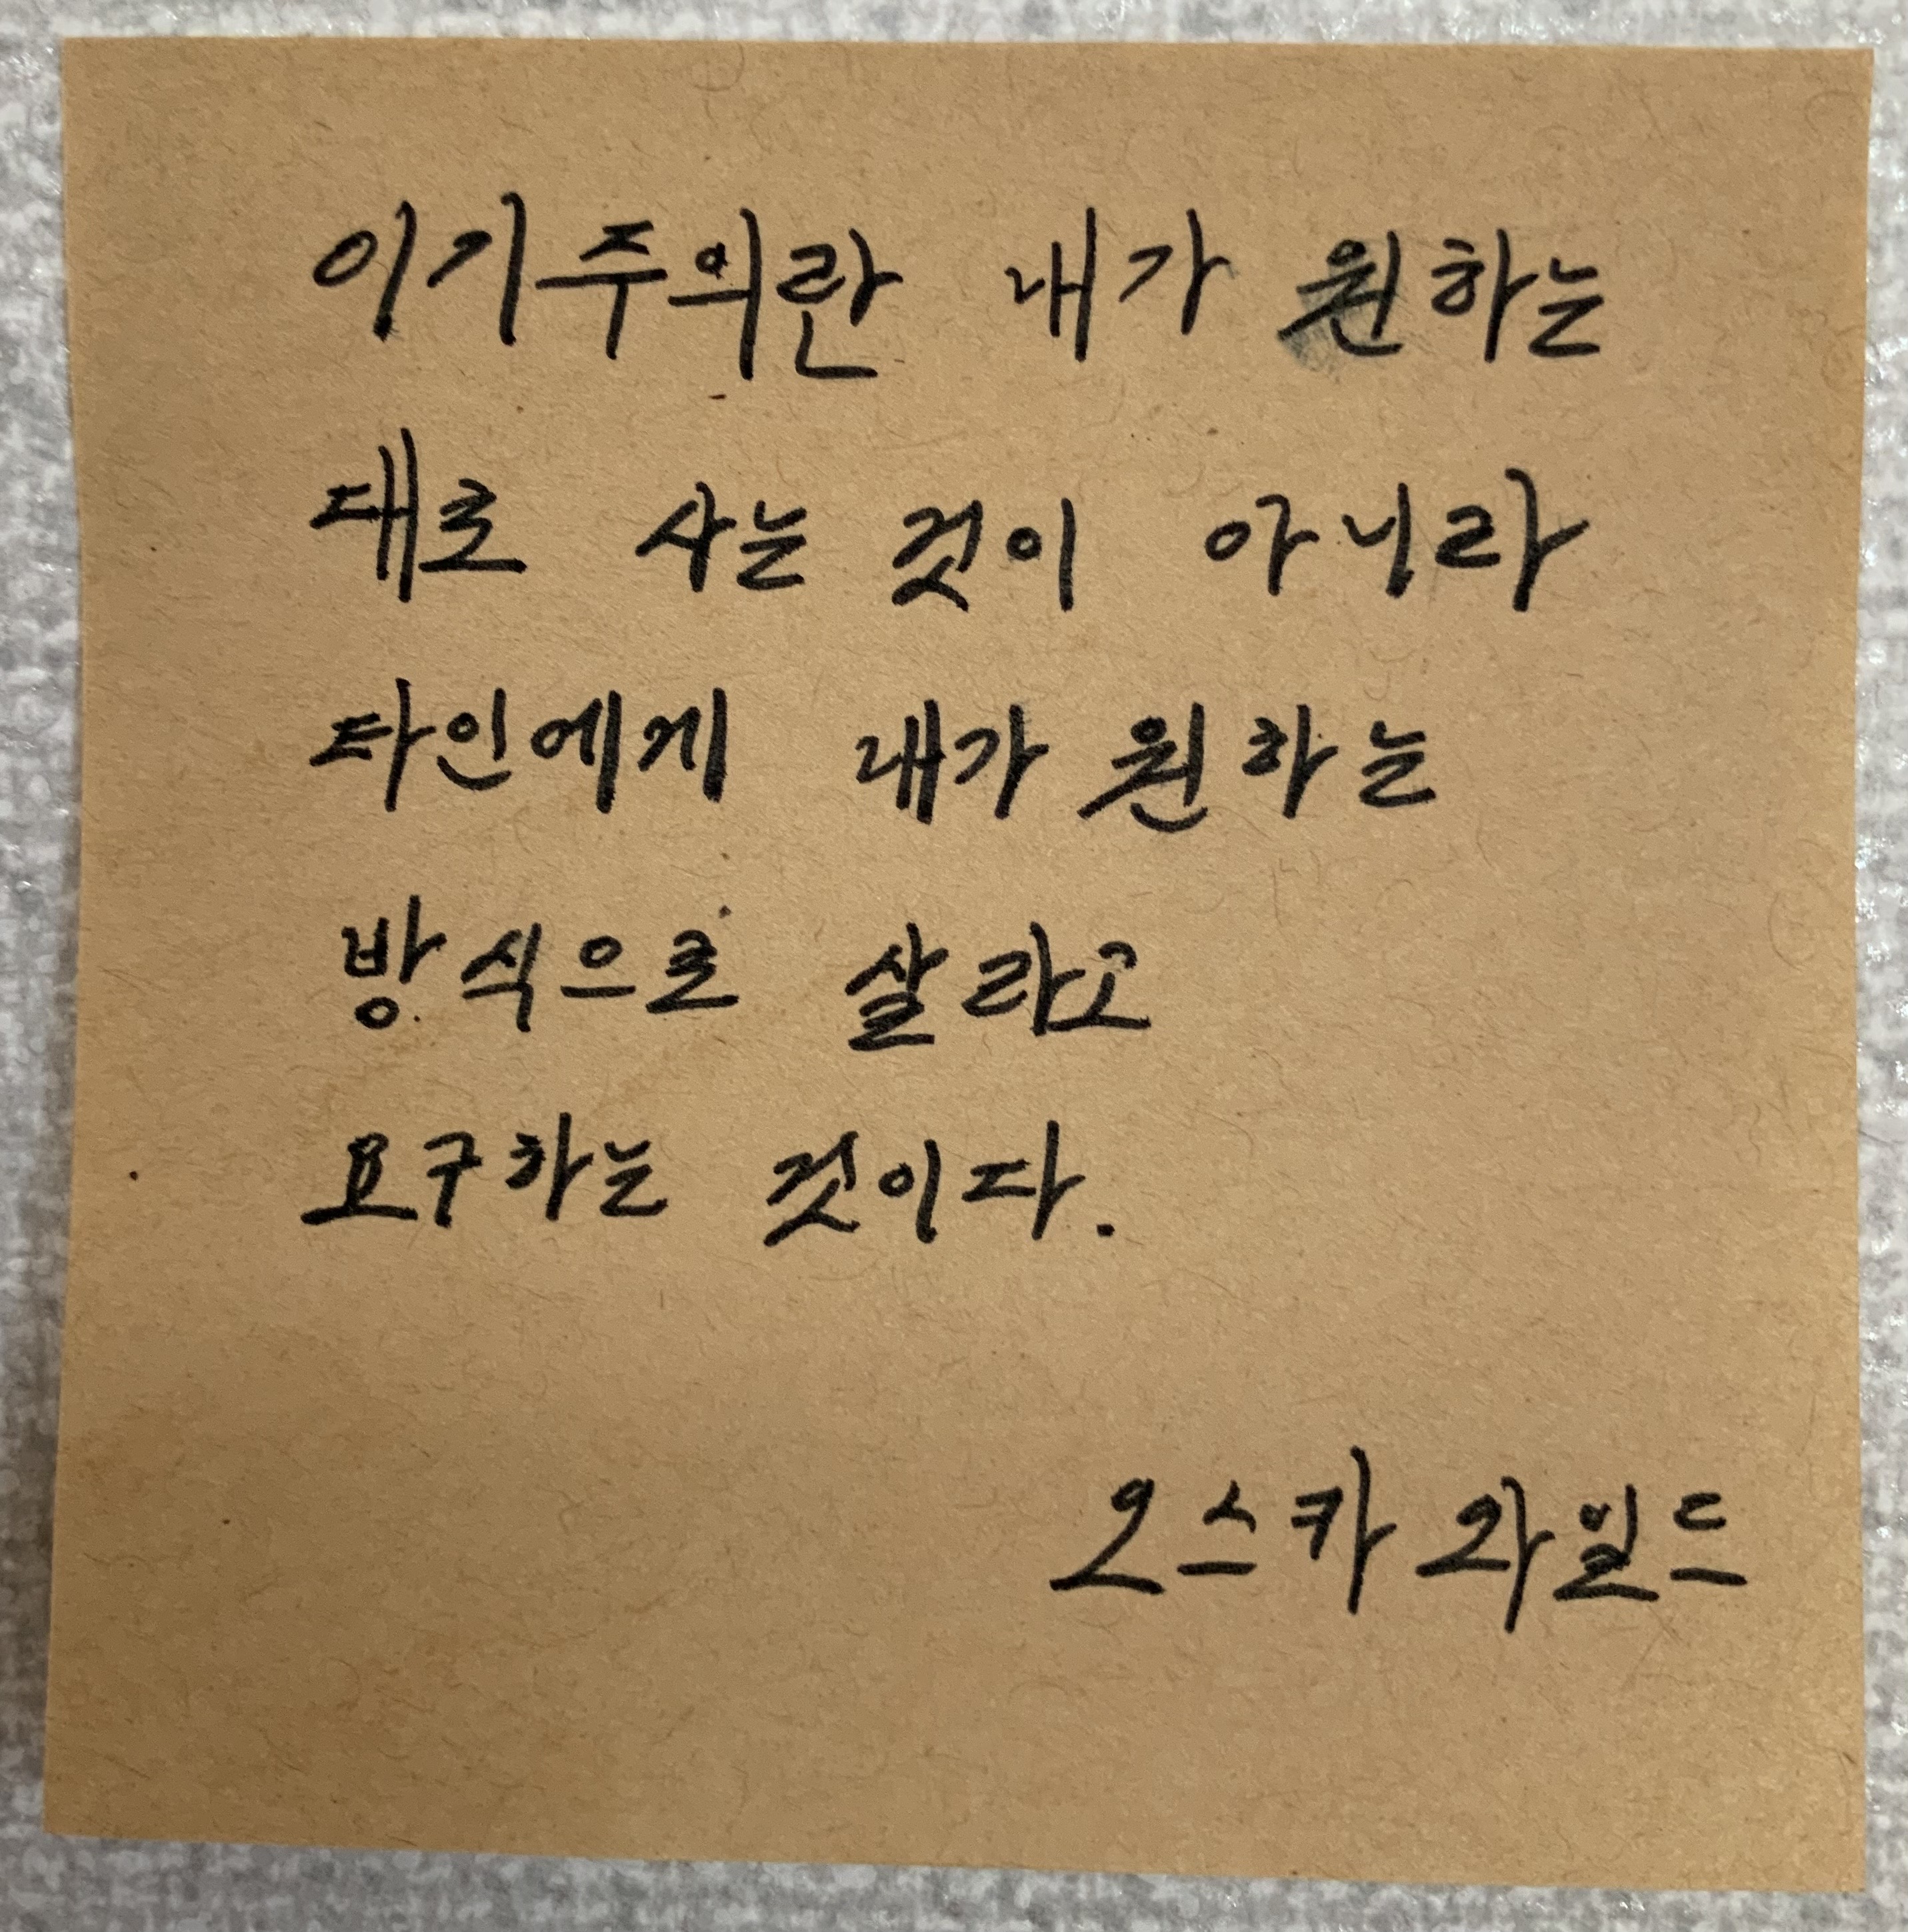 이기주의란 내가 원하는
대로 사는 것이 아니라
타인에게 내가 원하는
방식으로 살라고
요구하는 것이다.
오스카 와일드